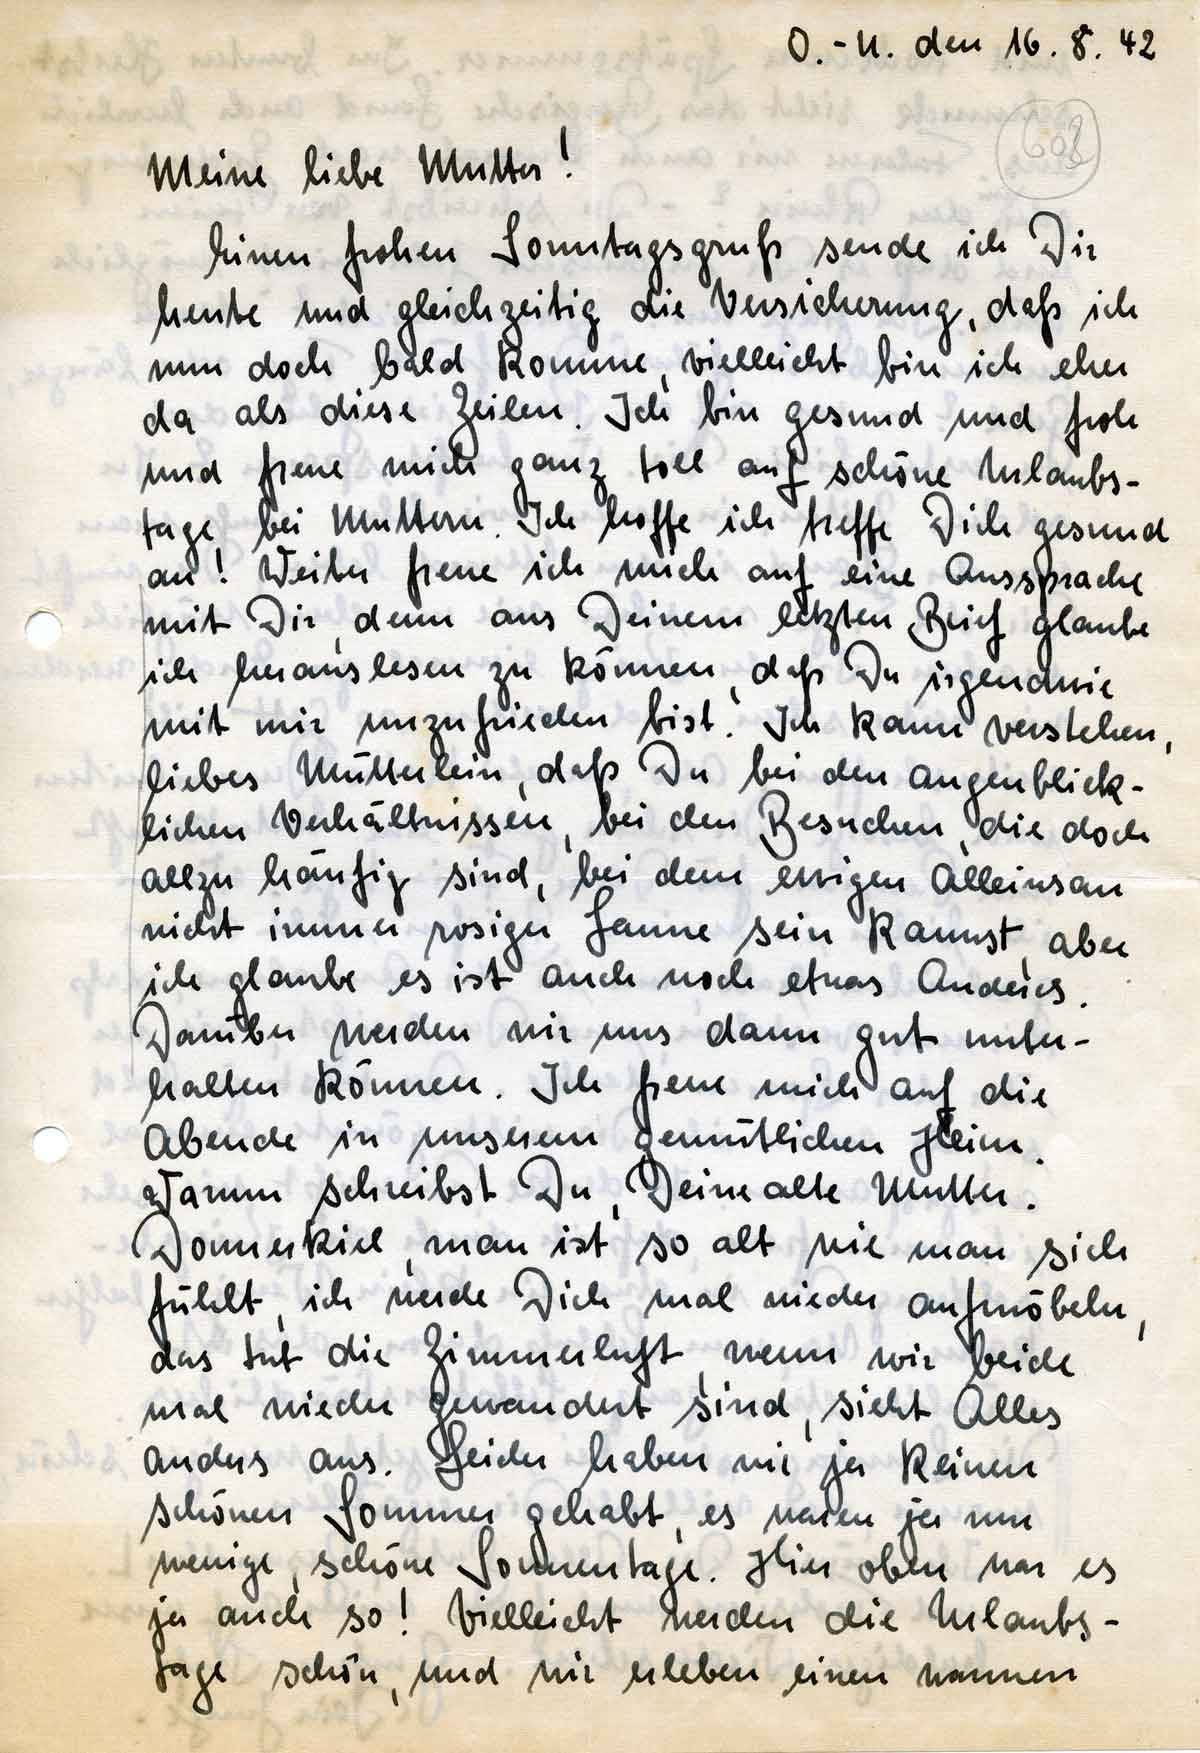 O.-U. den 16. 8. 42
608
Meine liebe Mutter!
Einen frohen Sonntagsgruß sende ich Dir
heute und gleichzeitig die Versicherung, daß ich
nun doch bald komme, vielleicht bin ich eher
da als diese Zeilen. Ich bin gesund und froh
und freue mich ganz toll auf schöne Urlaubs-
tage bei Muttern. Ich hoffe ich treffe Dich gesund
an! Weiter freue ich mich auf eine Aussprache
mit Dir, denn aus Deinem letzten Brief glaube
ich herauslesen zu können, daß Du irgendwie
mit mir unzufrieden bist. Ich kann verstehen,
liebes Mütterlein, daß Du bei den augenblick-
lichen Verhältnissen, bei den Besuchen, die doch
allzu häufig sind, bei dem ewigen Alleinsan
nicht immer rosiger Laune sein kannst, aber
ich glaube es ist auch noch etwas Anderes.
Darüber werden wir uns dann gut unter-
halten können. Ich freue mich auf die
Abende in unserem gemütlichen Heim.
Warum schreibst Du, Deine alte Mutter.
Donnerkiel, man ist so alt wie man sich
fühlt, ich werde Dich mal wieder aufmöbeln,
das tut die Zimmerluft, wenn wir beide
mal wieder gewandert sind, sieht Alles
anders aus. Leider haben wir ja keinen
schönen Sommer gehabt, es waren ja nur
wenige, schöne Sonnentage. Hier oben war es
ja auch so! Vielleicht werden die Urlaubs-
tage schön, und wir erleben einen warmen